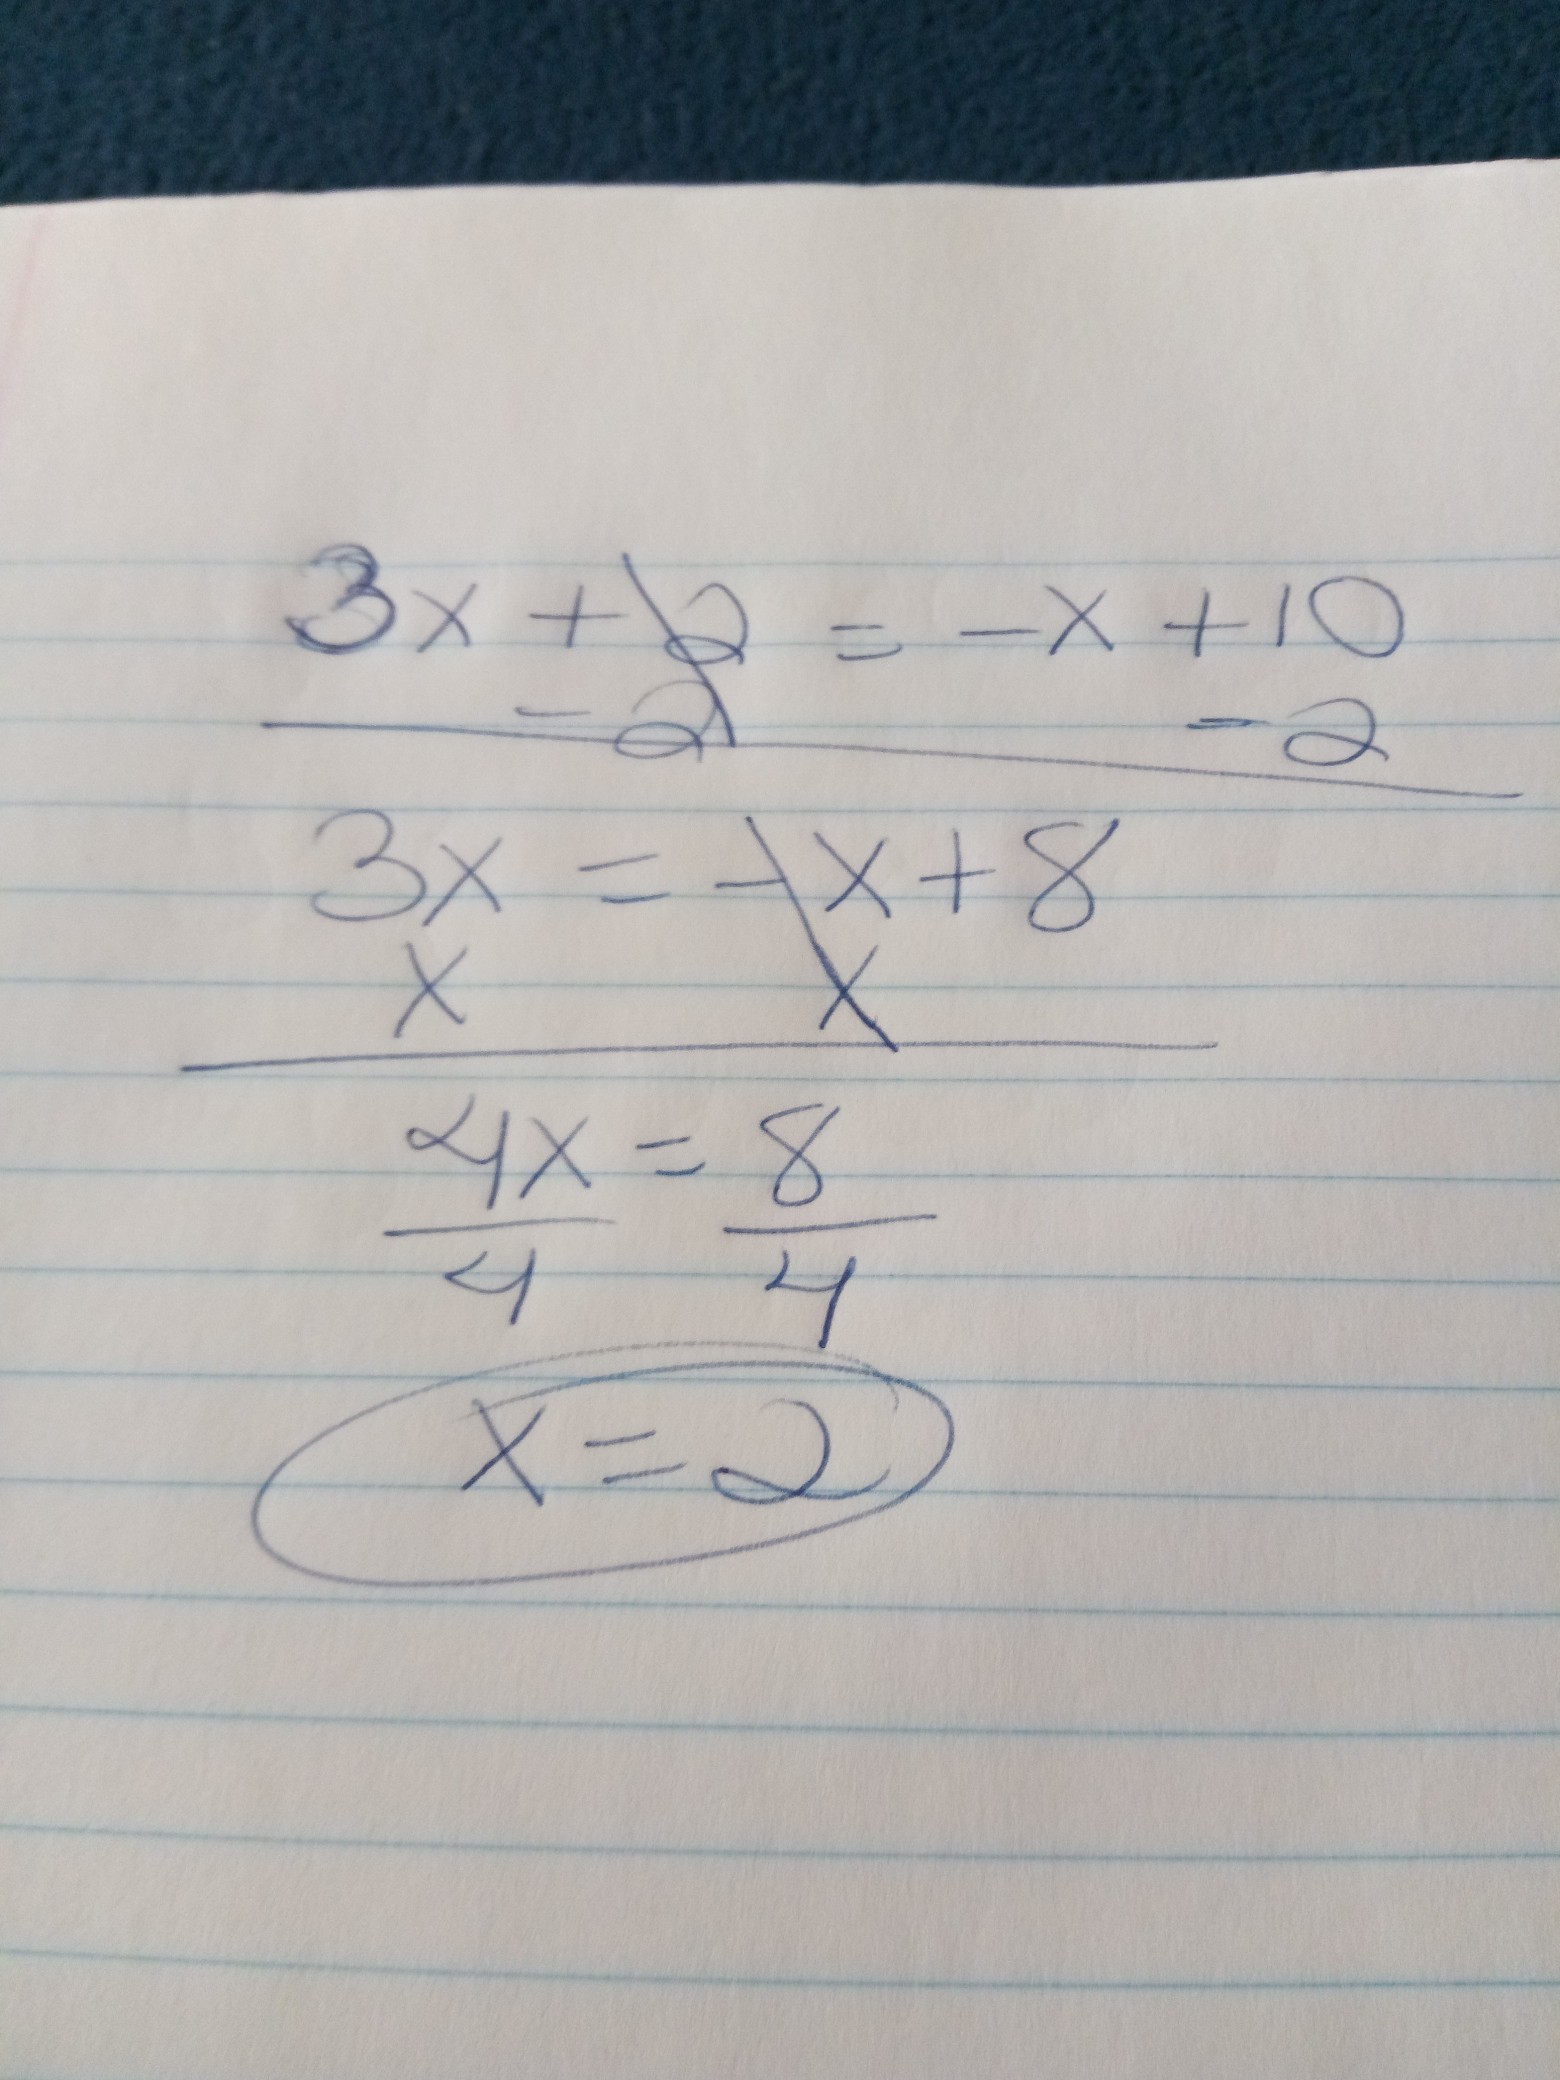 3x + 2 = -x + 10
-2 -2
3x = -x + 8
x x
4x = 8
4 4
x = 2